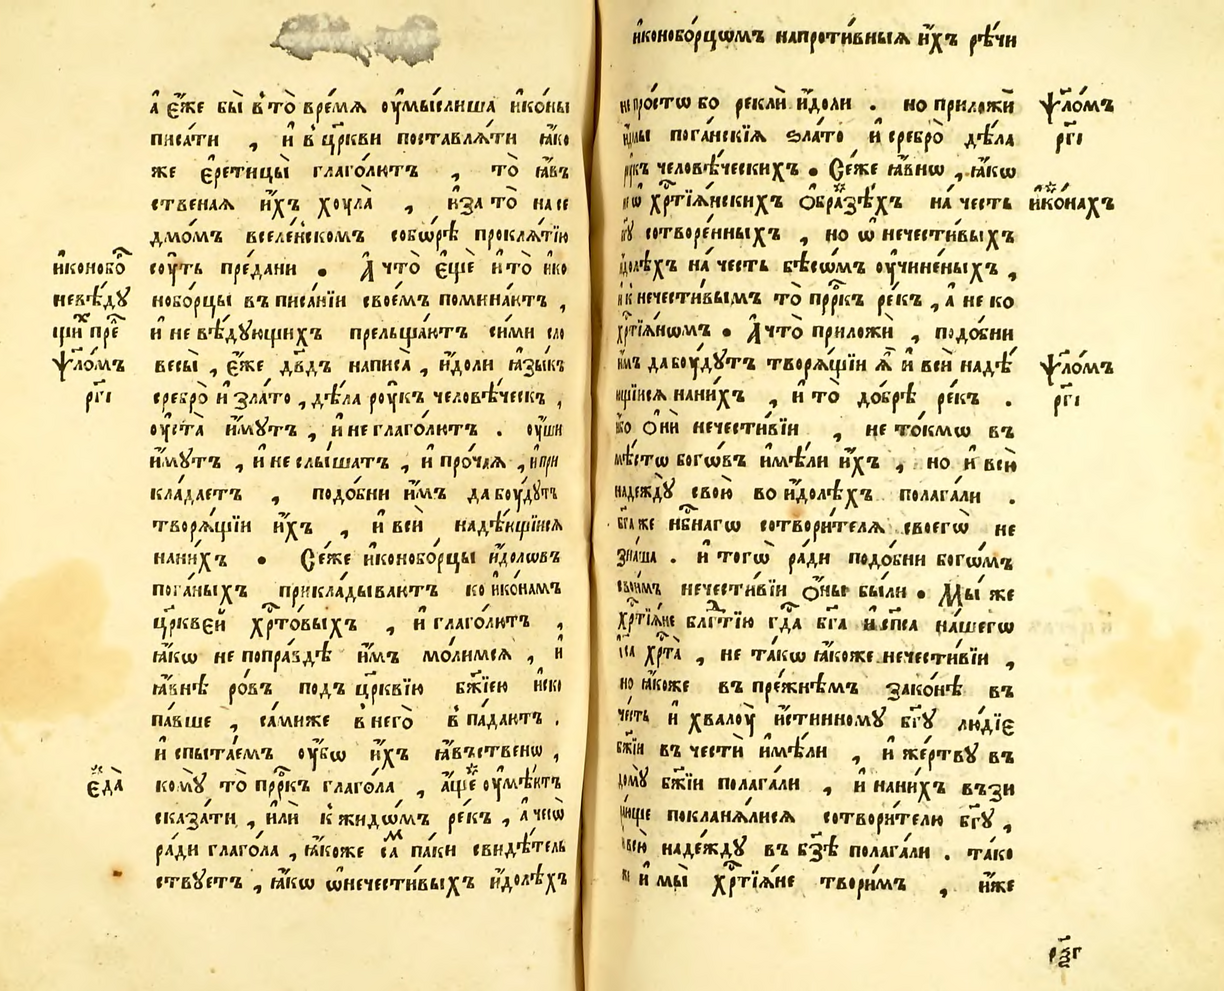 а҆ є҆́же бы̀ в̾то̀ вре́мѧ оу҆мы́слиша и҆ко́ны
писа́ти , и҆ в̾ цр҃кви поставлѧ́ти ꙗ҆́ко
же є҆рети́цы глаго́лютъ , то̀ ꙗ҆́въ
ственаѧ и҆́хъ хоула̀ , и҆за то̀ на се
дмо́мъ вселе́нскомъ собо́рѣ проклѧ́тїю
и҆коноборⷪ҇
соу́ть пре́дани . А҆ что̀ є҆щѐ и҆ то̀ и҆ко
невѣ́дꙋ
нобо́рцы въ писа́нїи свое́мъ помина́ютъ ,
щи́ⷯ пре
и҆ не вѣ́дꙋющихъ прельща́ютъ си́ми сло
ѱало́мъ
весы̀ , є҆́же дв҃дъ написа̀ , и҆́доли ꙗ҆зы́къ
рг҃і
сребро̀ и҆ зла́то , дѣ́ла роу́къ человѣ́ческъ ,
оу҆ста̀ и҆́мутъ , и҆ не глаго́лютъ . оу҆́ши
и҆́мутъ , и҆ не слы́шатъ , и҆ про́чаѧ , и҆ при
кла́даетъ , подо́бни и҆́мъ да боу́дꙋтъ
творѧ́щїи и҆́хъ , и҆ всѝ надѣ́ющїисѧ
нани́хъ . Се́же и҆коноборцы и҆́доловъ
пога́ныхъ прикла́дываютъ ко и҆ко́намъ
цр҃квєй хрⷭ҇то́выхъ , и҆ глаго́лютъ ,
ꙗ҆́кѡ не попра́вдѣ и҆́мъ мо́лимсѧ , и҆
ꙗ҆́внѣ ро́въ подъ цр҃квїю бж҃їею и҆ско
па́вше , са́миже в̾ него̀ в̾ па́даютъ .
и҆ спыта́емъ оу҆́бѡ и҆́хъ ꙗ҆́въственѡ ,
є҆да̀
комꙋ̀ то̀ прⷪ҇ркъ глаго́ла , а҆́ще оу҆мѣ́ютъ
сказа́ти , и҆лѝ к̾ жидѡ́мъ ре́къ , а҆ чесѡ̀
ра́ди глаго́ла , ꙗ҆́коже саⷨ па́ки свидѣ́тель
ствꙋетъ , ꙗ҆́кѡ ѡ҆ нечести́выхъ и҆́долѣхъ
и҆коноборцѡмъ напроти́вныѧ и҆́хъ рѣ́чи
не про́стѡ бо реклѝ и҆́доли . но приложѝ
ѱало́мъ
пога́нскїѧ зла́то и҆ сребро̀ дѣ́ла
рг҃і
роу́къ человѣ́ческихъ . Се́же ꙗ҆́внѡ , ꙗ҆́кѡ
не ѡ҆ хрⷭ҇тїѧ́нскихъ ѻ҆бра́зѣхъ на́ честь
и҆ко́нахъ
бг҃ꙋ сотворе́нныхъ , но ѡ҆ нечести́выхъ
и҆́долѣхъ на́ честь бѣсѡ́мъ оу҆чине́ныхъ ,
и҆ к̾ нечести́вымъ то̀ прⷪ҇ркъ ре́къ , а҆ не ко
хрⷭ҇тїѧ́нѡмъ . А҆ что̀ приложѝ , подо́бни
и҆́мъ да боу́дутъ творѧ́щїи ѧ҆̀ и҆ всѝ надѣ́
ѱало́мъ
ющїисѧ нани́хъ , и҆ то̀ до́брѣ ре́къ .
рг҃і
и҆́бо ѻ҆нѝ нечести́вїи , не то́кмѡ въ
мѣ́стѡ богѡ́въ и҆мѣ́ли и҆́хъ , но и҆ всю̀
наде́ждꙋ свою̀ во и҆́долѣхъ полага́ли .
бг҃а же нбⷭ҇нагѡ сотвори́телѧ своегѡ̀ не
зна́ша . и҆ тогѡ̀ ра́ди подо́бни богѡ́мъ
свои́мъ нечести́вїи ѻ҆́ны бы́ли . Мы́ же
хрⷭ҇тїѧ́не блгⷣтїю гдⷭ҇а бг҃а и҆ спⷭ҇а на́шегѡ
і҆са хрⷭ҇та̀ , не та́кѡ ꙗ҆́коже нечести́вїи ,
но ꙗ҆́коже въ пре́жнѣмъ зако́нѣ въ
че́сть и҆ хвалоу̀ и҆́стинномꙋ бг҃ꙋ лю́дїє
бж҃їи въ че́сти и҆мѣ́ли , и҆ же́ртвꙋ въ
домꙋ̀ бж҃їи полага́ли , и҆ нани́хъ въз
и
ра́юще поклана́лисѧ сотвори́телю бг҃ꙋ ,
и҆ всю̀ наде́ждꙋ въ бз҃ѣ полага́ли . та́ко
же и҆ мы̀ хрⷭ҇тїѧ́не твори́мъ , и҆́же
рѯ҃г